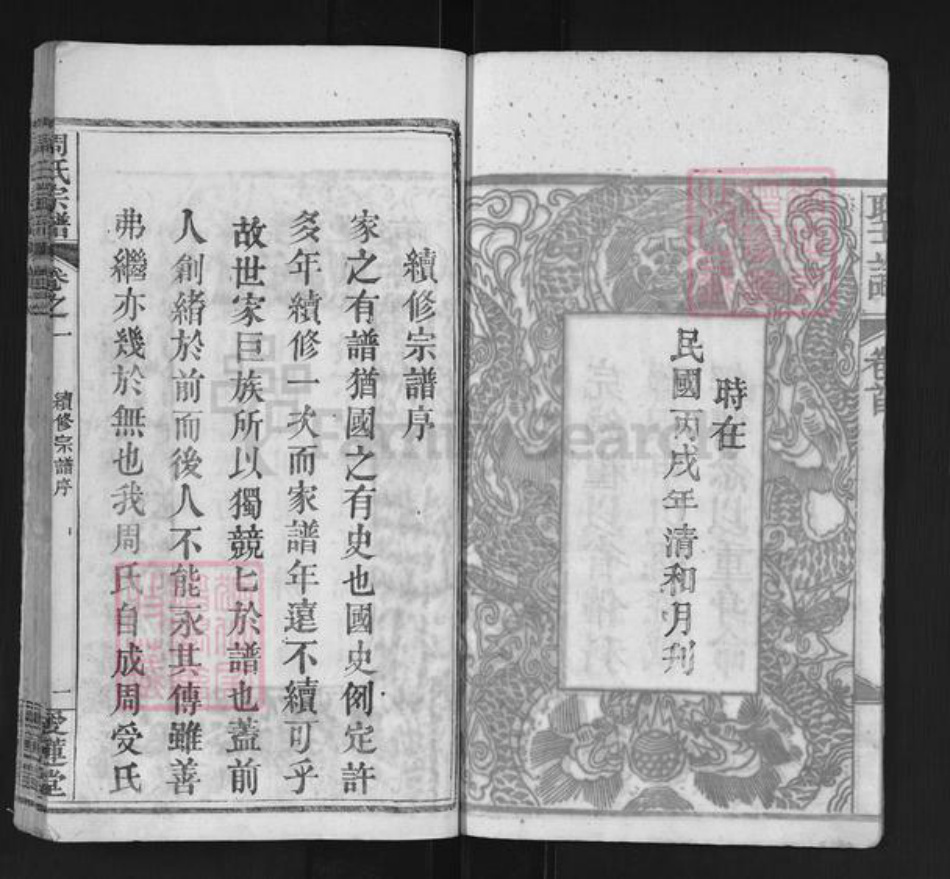 卷首
時在
民國丙戌年清和月刋
續修宗譜序
家之有譜猶國之有史也國史例定許
多年續修一次而家譜年遠不續可乎
故世家巨族所以獨競匕於譜也蓋前
人創緒於前而後人不能永其傳雖善
弗繼亦幾於無也我周氏自成周受氏
周氏宗譜
卷之一
續修宗譜序
一
愛蓮堂
FamilySearch